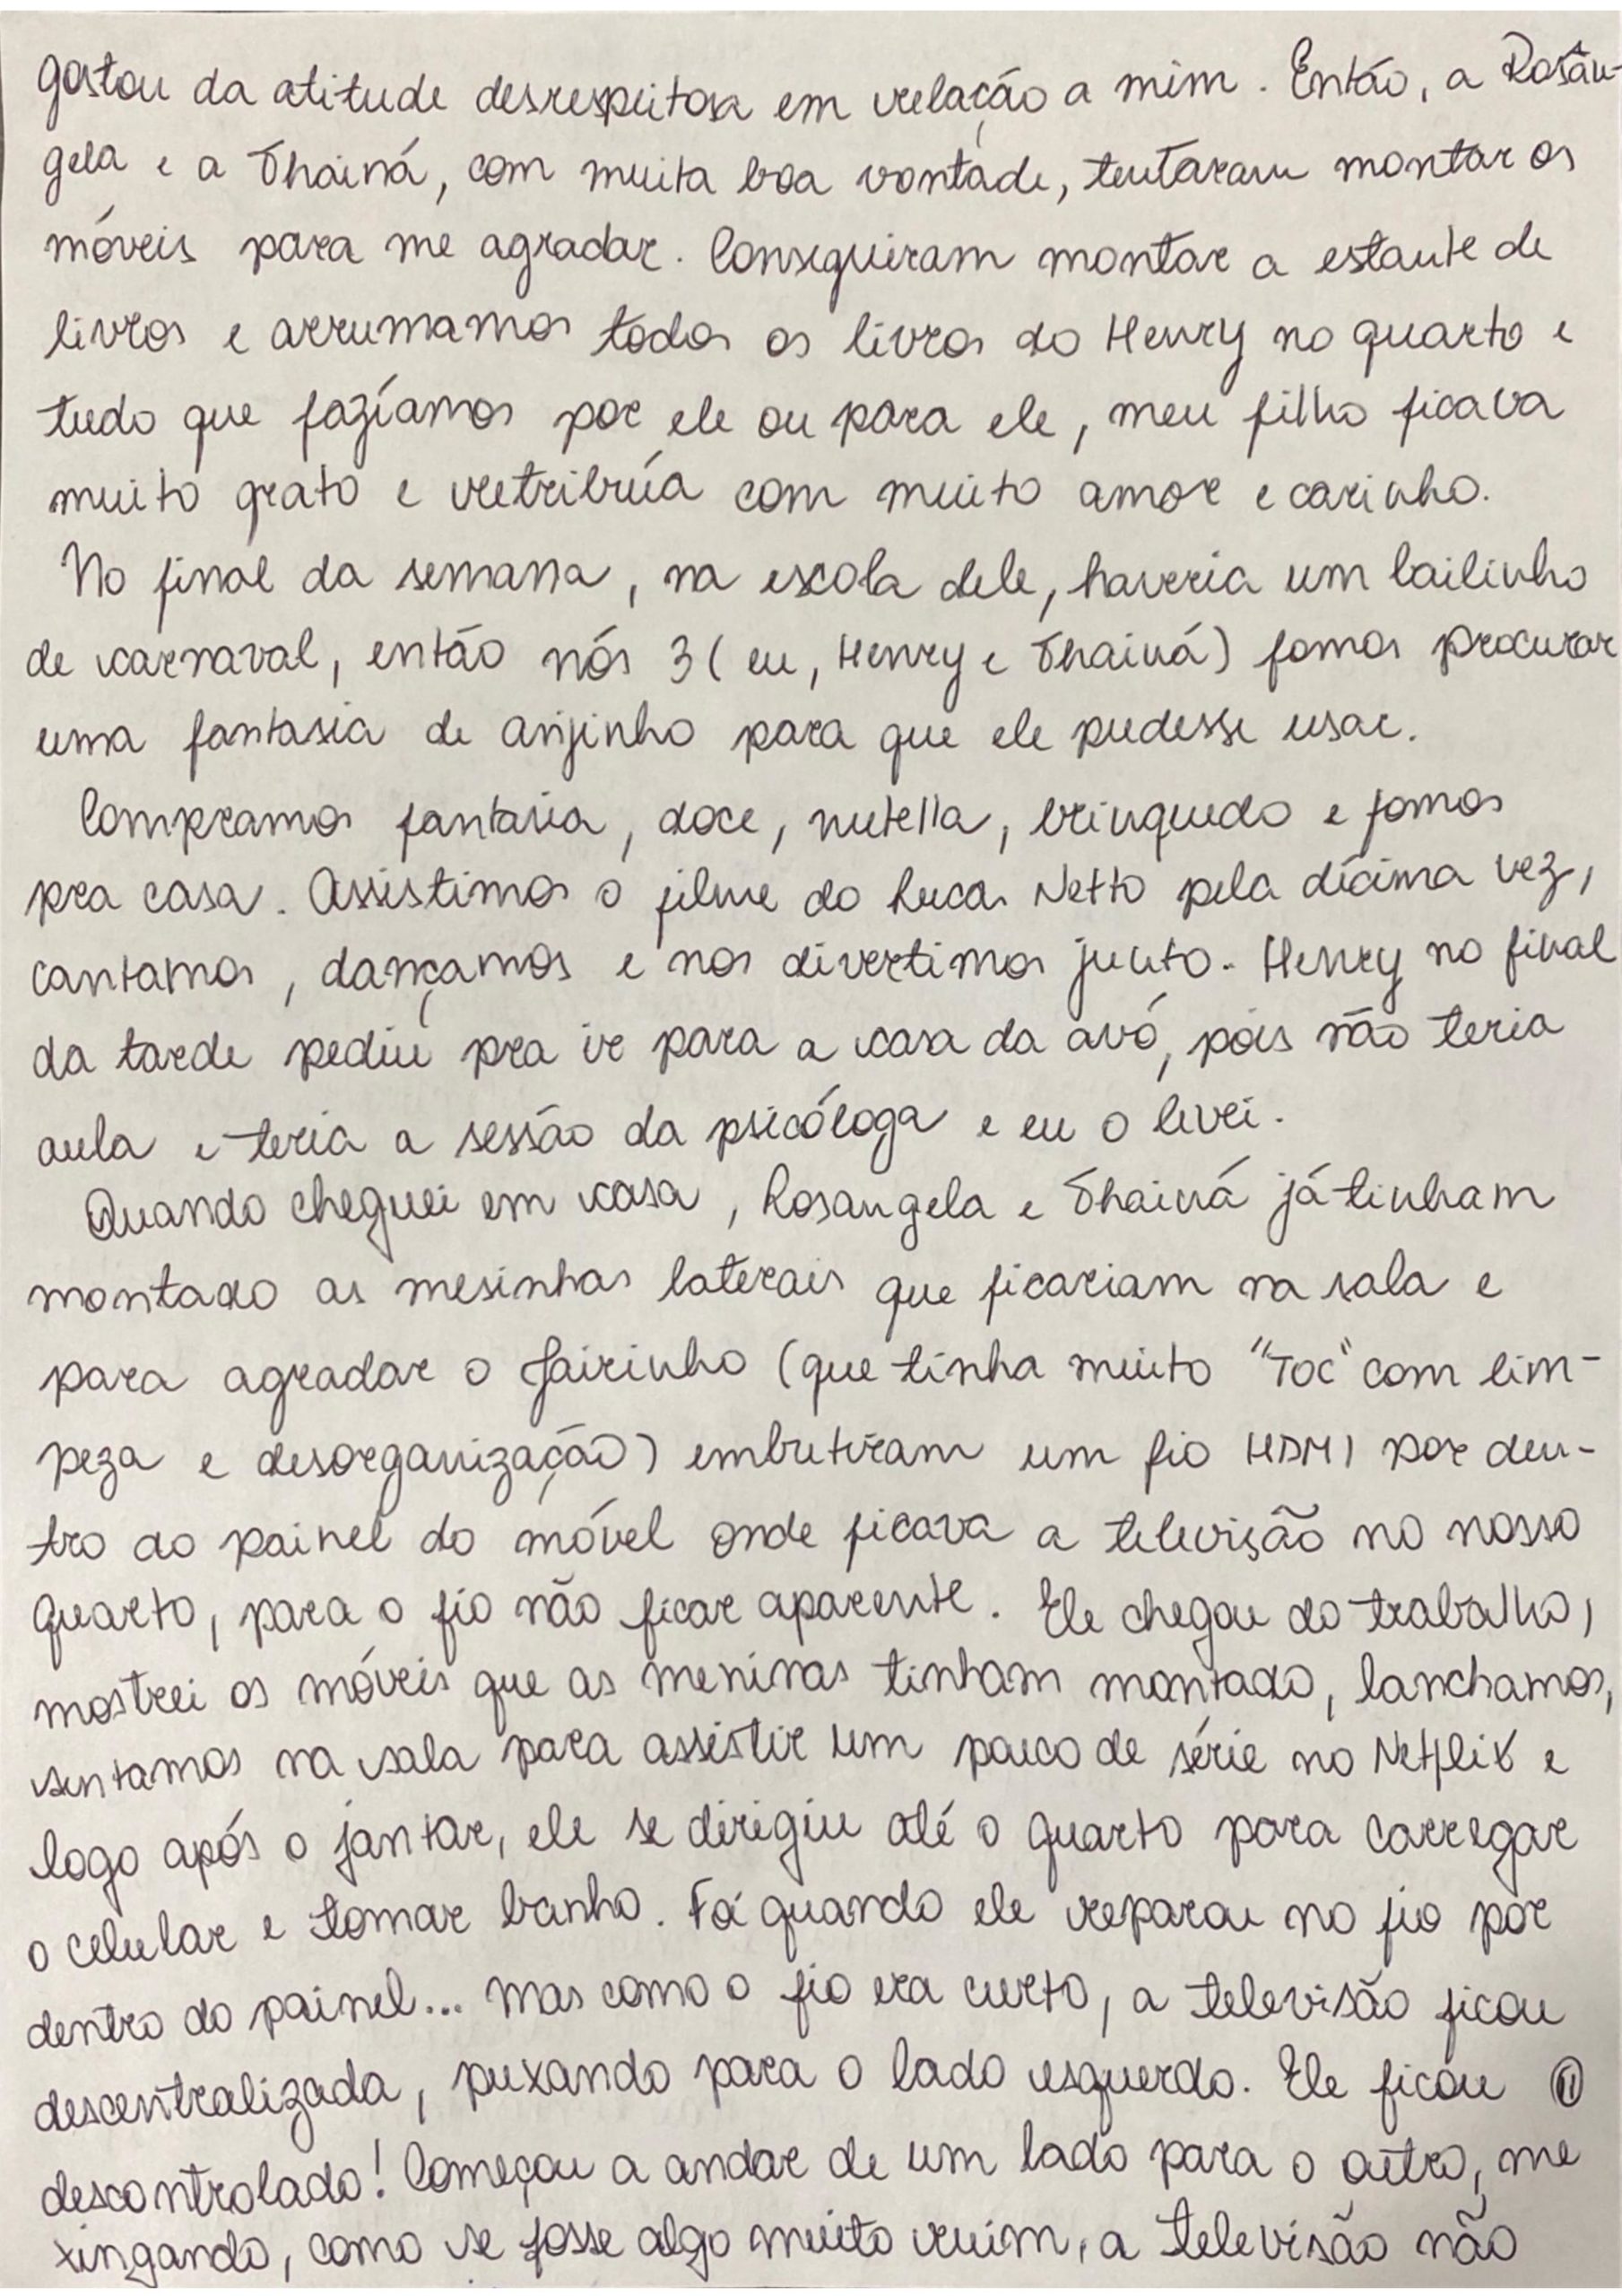 gostou da atitude desrespeitosa em relação a mim. Então, a Rosân-
gela e a Thainá, com muita boa vontade, tentaram montar os
móveis para me agradar. Conseguiram montar a estante de
livros e arrumamos todos os livros do Henry no quarto e
tudo que fazíamos por ele ou para ele, meu filho ficava
muito grato e retribuía com muito amor e carinho.
No final da semana, na escola dele, haveria um bailinho
de carnaval, então nós 3 (eu, Henry e Thainá) fomos procurar
uma fantasia de anjinho para que ele pudesse usar.
Compramos fantasia, doce, nutella, brinquedo e fomos
pra casa. Assistimos o filme do Lucas Netto pela décima vez,
cantamos, dançamos e nos divertimos junto. Henry no final
da tarde pediu pra ir para a casa da avó, pois não teria
aula e teria a sessão da psicóloga e eu o levei.
Quando cheguei em casa, Rosangela e Thainá já tinham
montado as mesinhas laterais que ficariam na sala e
para agradar o Jairinho (que tinha muito "TOC" com lim-
peza e desorganização) embutiram um fio HDMI por den-
tro do painel do móvel onde ficava a televisão no nosso
quarto, para o fio não ficar aparente. Ele chegou do trabalho,
mostrei os móveis que as meninas tinham montado, lanchamos,
sentamos na sala para assistir um pouco de série no Netflix e
logo após o jantar, ele se dirigiu até o quarto para carregar
o celular e tomar banho. Foi quando ele reparou no fio por
dentro do painel... mas como o fio era curto, a televisão ficou
descentralizada, puxando para o lado esquerdo. Ele ficou ⑪
descontrolado! Começou a andar de um lado para o outro, me
xingando, como se fosse algo muito ruim, a televisão não